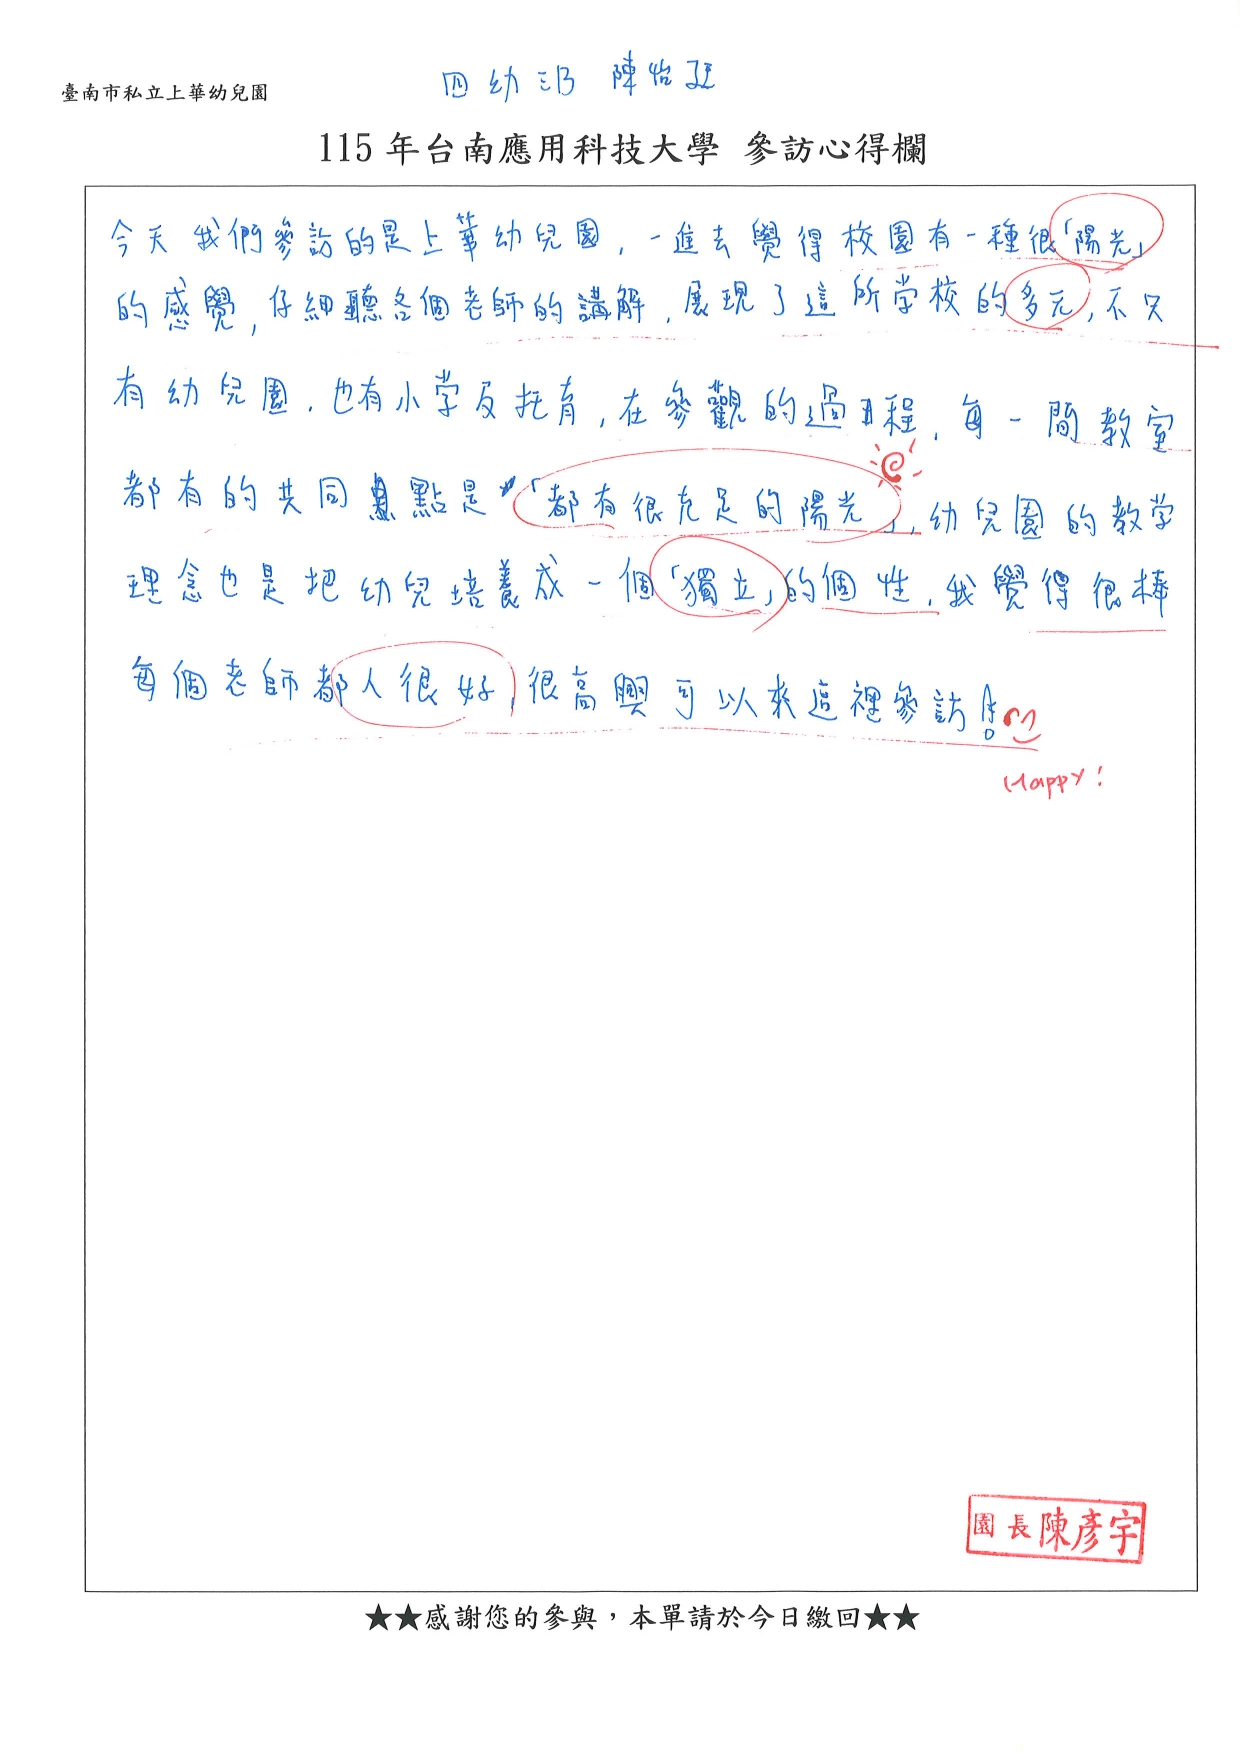 臺南市私立上華幼兒園
四幼三B 陳怡廷
115年台南應用科技大學 參訪心得欄
今天我們參訪的是上華幼兒園,一進去覺得校園有一種很「陽光」
的感覺,仔細聽各個老師的講解,展現了這所学校的多元,不只
有幼兒園,也有小学及托育,在參觀的過程,每一間教室
都有的共同點是「都有很充足的陽光」,幼兒園的教学
理念也是把幼兒培養成一個「獨立」的個性,我覺得很棒
每個老師都人很好,很高興可以來這裡參訪!
Happy!
園長陳彥宇
★★感謝您的參與,本單請於今日繳回★★